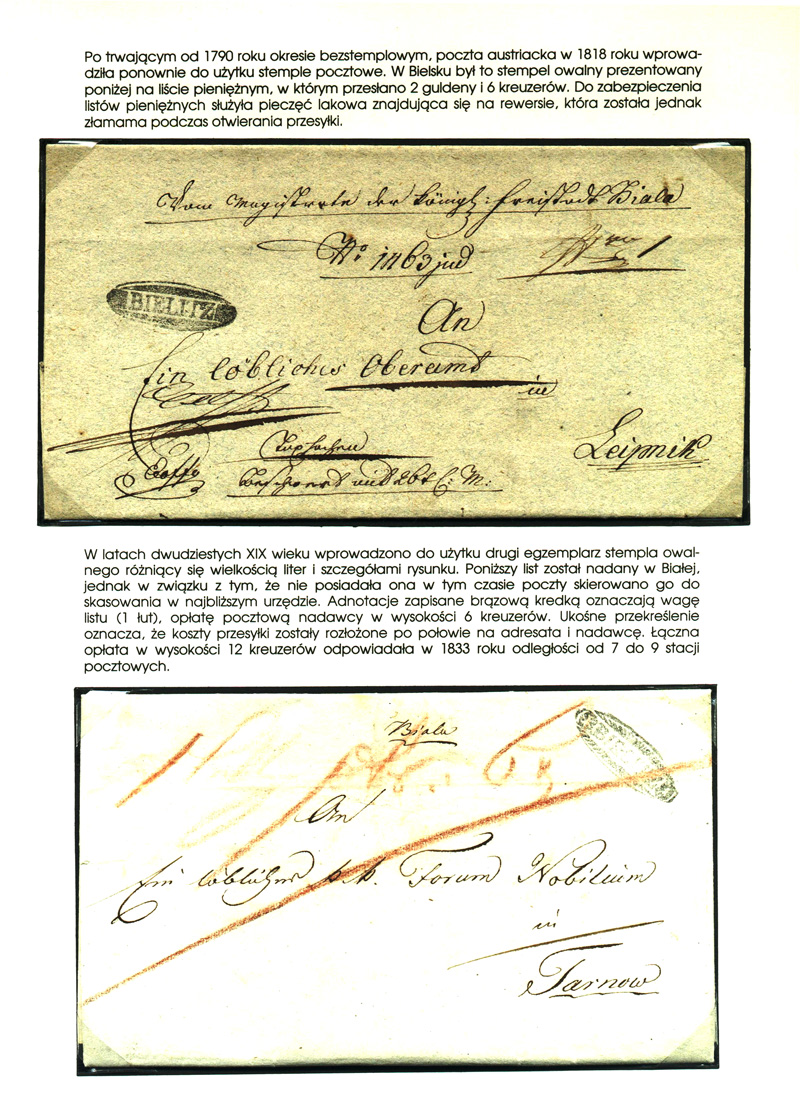 Po trwającym od 1790 roku okresie bezstemplowym, poczta austriacka w 1818 roku wprowa-
dziła ponownie do użytku stemple pocztowe. W Bielsku był to stempel owalny prezentowany
poniżej na liście pieniężnym, w którym przesłano 2 guldeny i 6 kreuzerów. Do zabezpieczenia
listów pieniężnych służyła pieczęć lakowa znajdująca się na rewersie, która została jednak
złamama podczas otwierania przesyłki.
Vom Magistrate der Königl: Freistadt Biala
No 1463 jud
BIELITZ
An
Ein löbliches Oberamt
in
Leipnik
beschwert mit 2 f C: M:
W latach dwudziestych XIX wieku wprowadzono do użytku drugi egzemplarz stempla owal-
nego różniący się wielkością liter i szczegółami rysunku. Poniższy list został nadany w Białej,
jednak w związku z tym, że nie posiadała ona w tym czasie poczty skierowano go do
skasowania w najbliższym urzędzie. Adnotacje zapisane brązową kredką oznaczają wagę
listu (1 łut), opłatę pocztową nadawcy w wysokości 6 kreuzerów. Ukośne przekreślenie
oznacza, że koszty przesyłki zostały rozłożone po połowie na adresata i nadawcę. Łączna
opłata w wysokości 12 kreuzerów odpowiadała w 1833 roku odległości od 7 do 9 stacji
pocztowych.
Biala
An
Ein löbliches k.k. Forum Nobilium
in
Tarnow